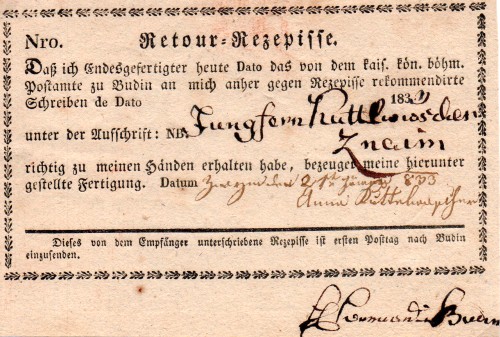 Nro. Retour-Rezepisse.
Daß ich Endesgefertigter heute Dato das von dem kais. kön. böhm.
Postamte zu Budin an mich anher gegen Rezepisse rekommendirte
Schreiben de Dato 1833
unter der Aufschrift: NB. Jungfern
Znaim
richtig zu meinen Händen erhalten habe, bezeuget meine hierunter
gestellte Fertigung. Datum 833
Anna
Dieses von dem Empfänger unterschriebene Rezepisse ist ersten Posttag nach Budin
einzusenden.
Budin